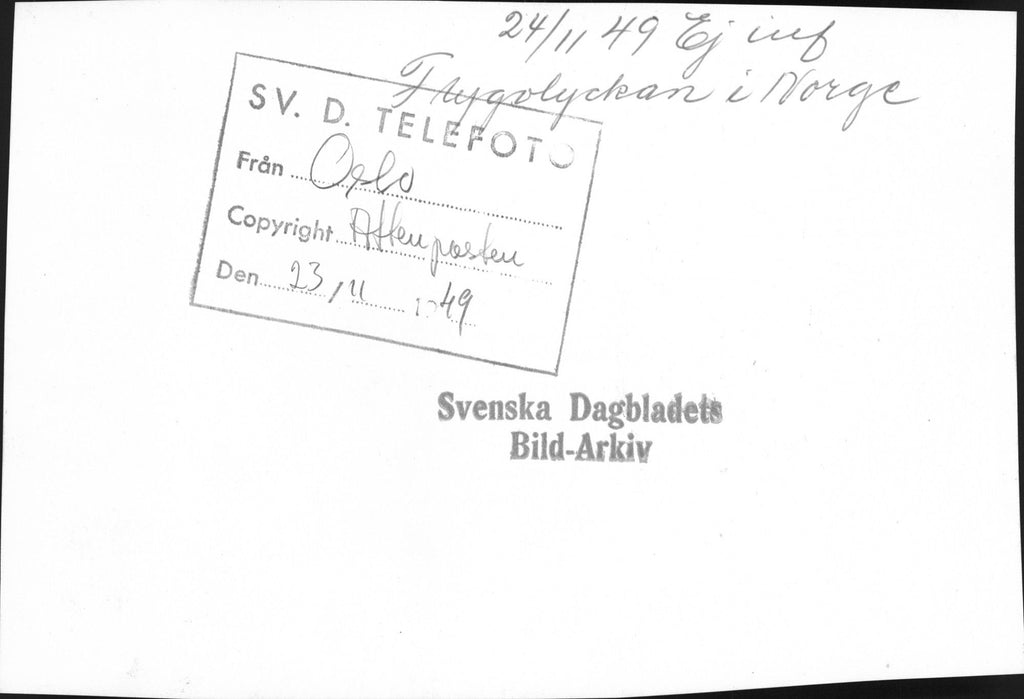 24/11 49 Ej inf
Flygolyckan i Norge
SV. D. TELEFOTO
Från Oslo
Copyright Aftenposten
Den 23/11 1949
Svenska Dagbladets
Bild-Arkiv